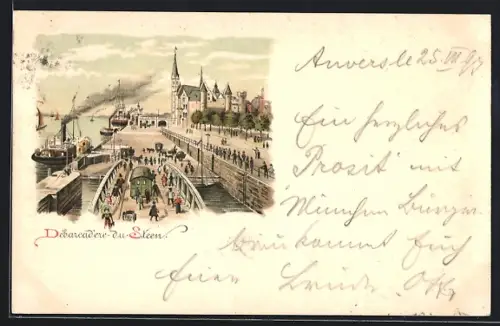 Débarcadère du Steen.
Anvers le 25 VIII 97
Ein herzliches
Prosit mit
München Bürger
bräu kommt
Bruder Otto